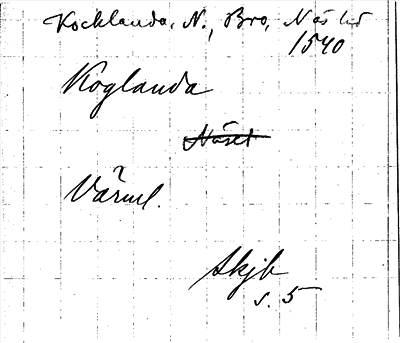 Kocklanda, N., Bro, Näs hd
1540
Koglanda
Näset
Värml.
Skjb
s. 5